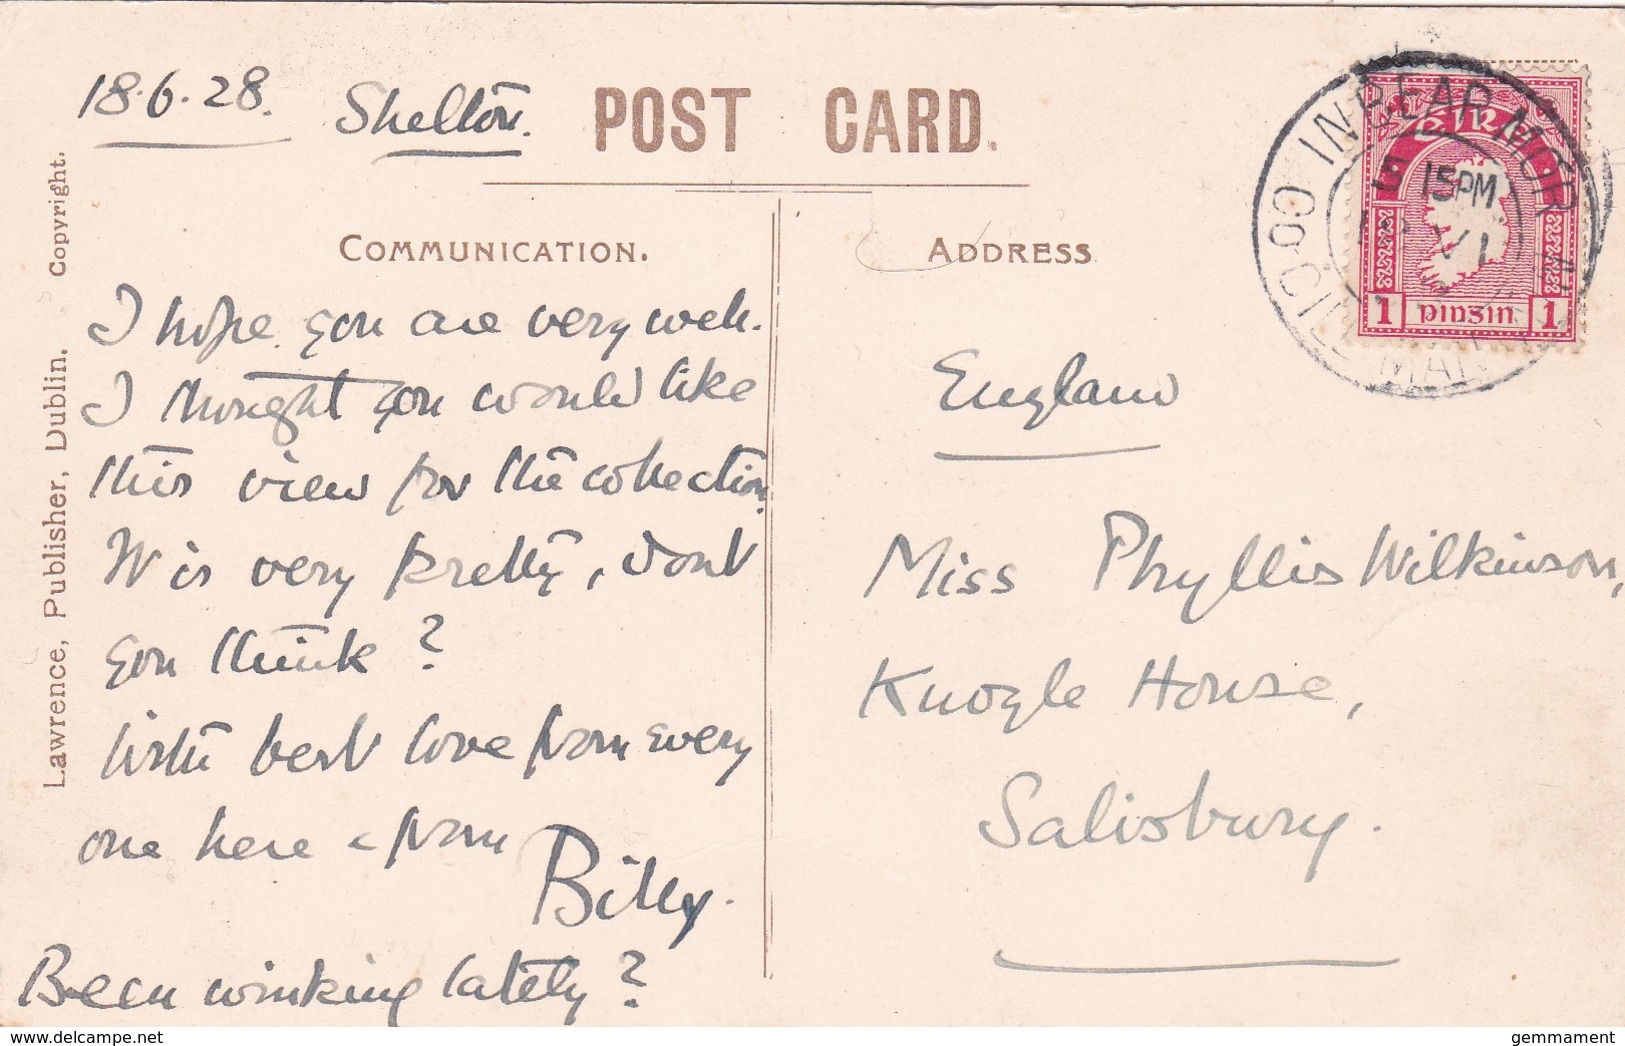 18.6.28. Shelton.
POST CARD.
COMMUNICATION.
ADDRESS
I hope you are very well.
I thought you would like
this view for the collection
It is very pretty, dont
you think?
With best love from every
one here & from
Billy.
Been winking lately?
England
Miss Phyllis Wilkinson,
Knoyle House,
Salisbury.
Lawrence, Publisher, Dublin. Copyright.
INBEAR MÓR
CO. CILL
5 15PM
VI
EIRE
1 pinsin 1
www.delcampe.net
gemmament